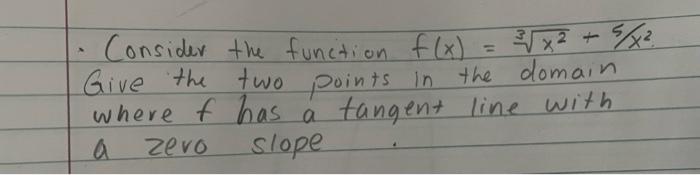 · Consider the function f(x) = ∛x² + 5/x².
Give the two points in the domain
where f has a tangent line with
a zero slope.